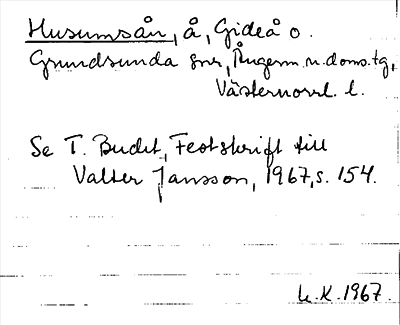 Husumsån, å, Gideå o.
Grundsunda snr, Ångerm. n. doms.tg,
Västernorrl. l.
Se T. Budit, Festskrift till
Valter Jansson, 1967, s. 154.
L.K. 1967.